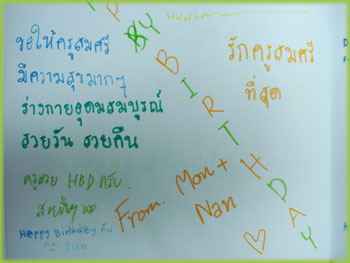 ขอให้ครูสมศรี
มีความสุขมากๆ
ร่างกายอุดมสมบูรณ์
สวยวัน สวยคืน
รักครูสมศรี
ที่สุด
P P Y BIRTHDAY
From. Mon + Nan
ครูสวย HBD ครับ..
Happy Birthday